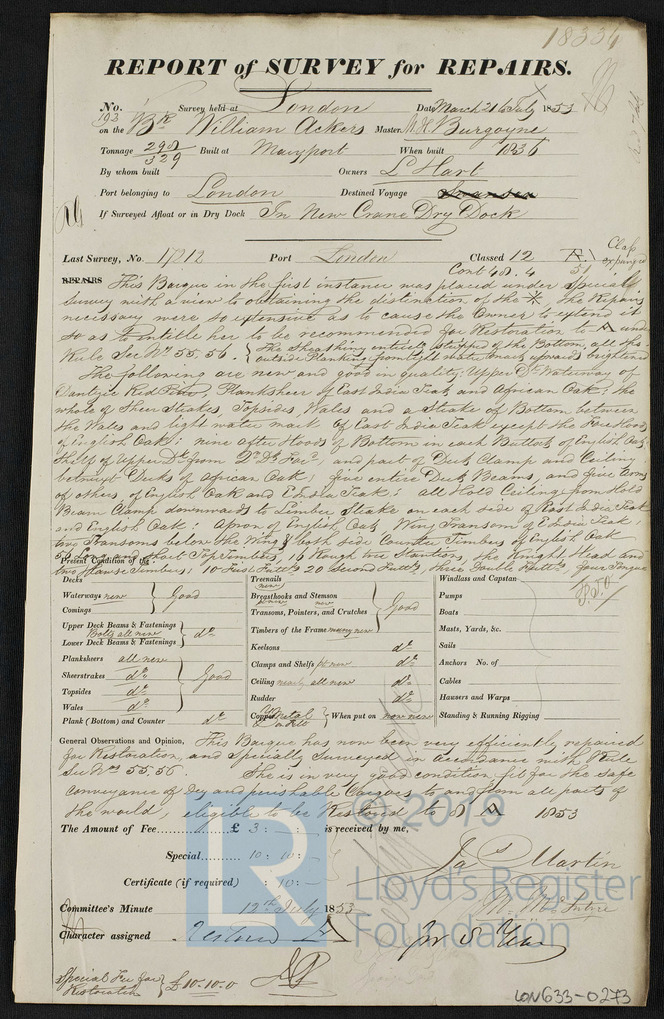 18334
REPORT of SURVEY for REPAIRS.
No. 193 Survey held at London Date March 21 to July 1853
on the Bk William Ackers Master Burgoyne
Tonnage 298 329 Built at Maryport When built 1836
By whom built Owners L Hart
Port belonging to London Destined Voyage Swansea
If Surveyed Afloat or in Dry Dock In New Crane Dry Dock
Last Survey, No. 17212 Port London Classed 12 51 Clap expunged
REPAIRS This Barque in the first instance was placed under Specially
Survey with a view to obtaining the distinction of the *, the Repairs
necessary were so extensive as to cause the Owner to extend it
so as to entitle her to be recommended for Restoration to A under
Rule Sec Nos 55. 56. { The Sheathing entirely stripped off the Bottom, all the
outside Planking from light water mark upwards brightened
The following are new and good in quality: Upper Dk Waterway of
Dantzic Red Pine, Planksheer of East India Teak and African Oak; the
whole of Sheer Strakes, Topsides, Wales and a Strake of Bottom between
the Wales and light water mark of East India Teak except the Fore Hoods
of English Oak; nine after Hoods of Bottom in each Buttock of English Oak,
Shelf of Upper Dk from and part of Deck Clamp and Ceiling
betwixt Decks of African Oak; five entire Deck Beams, and five arms
of others, of English Oak and E India Teak; all Hold Ceiling from Hold
Beam Clamp downwards to Limber Strake on each side of East India Teak
and English Oak; Apron of English Oak Wing Transom of E India Teak;
two Transoms below the Wing & both side Counter Timbers of English Oak
Long and Short Top Timbers, 16 Rough tree Stantions, the Knight Head and
two Hawse Timbers; 10 First Futtks 20 Second Futtks, three Double Futtks, four
Present Condition of the :
Decks
Waterways new
Comings
Good
Upper Deck Beams & Fastenings
Bolts all new
Lower Deck Beams & Fastenings
do
Planksheers all new
Sheerstrakes do
Topsides do
Wales do
Good
Plank (Bottom) and Counter do
Treenails new
Breasthooks and Stemson new
Transoms, Pointers, and Crutches
Good
Timbers of the Frame many new
Keelsons do
Clamps and Shelfs pt new do
Ceiling nearly all new do
Rudder do
Copper Y Metal When put on now new
Windlass and Capstan
Pumps
Boats
Masts, Yards, &c.
Sails
Anchors No. of
Cables
Hawsers and Warps
Standing & Running Rigging
P.T.O
General Observations and Opinion, This Barque has now been very efficiently repaired
for Restoration, and Specially Surveyed in accordance with Rule
Sec Nos 55. 56. She is in very good condition fit for the safe
conveyance of Dry and perishable Cargoes to and from all parts of
the world, eligible to be Restored to A 1853
The Amount of Fee £ 3 : - : - is received by me,
Special 10 : 10 : -
Certificate (if required) : 10 : -
Jas Martin
Committee's Minute 12th July 1853
Character assigned Restored A for 8 Years
Special Fee for Restoration } £10-10-0
© 2019
LR
Lloyd's Register
Foundation
LON633-0273